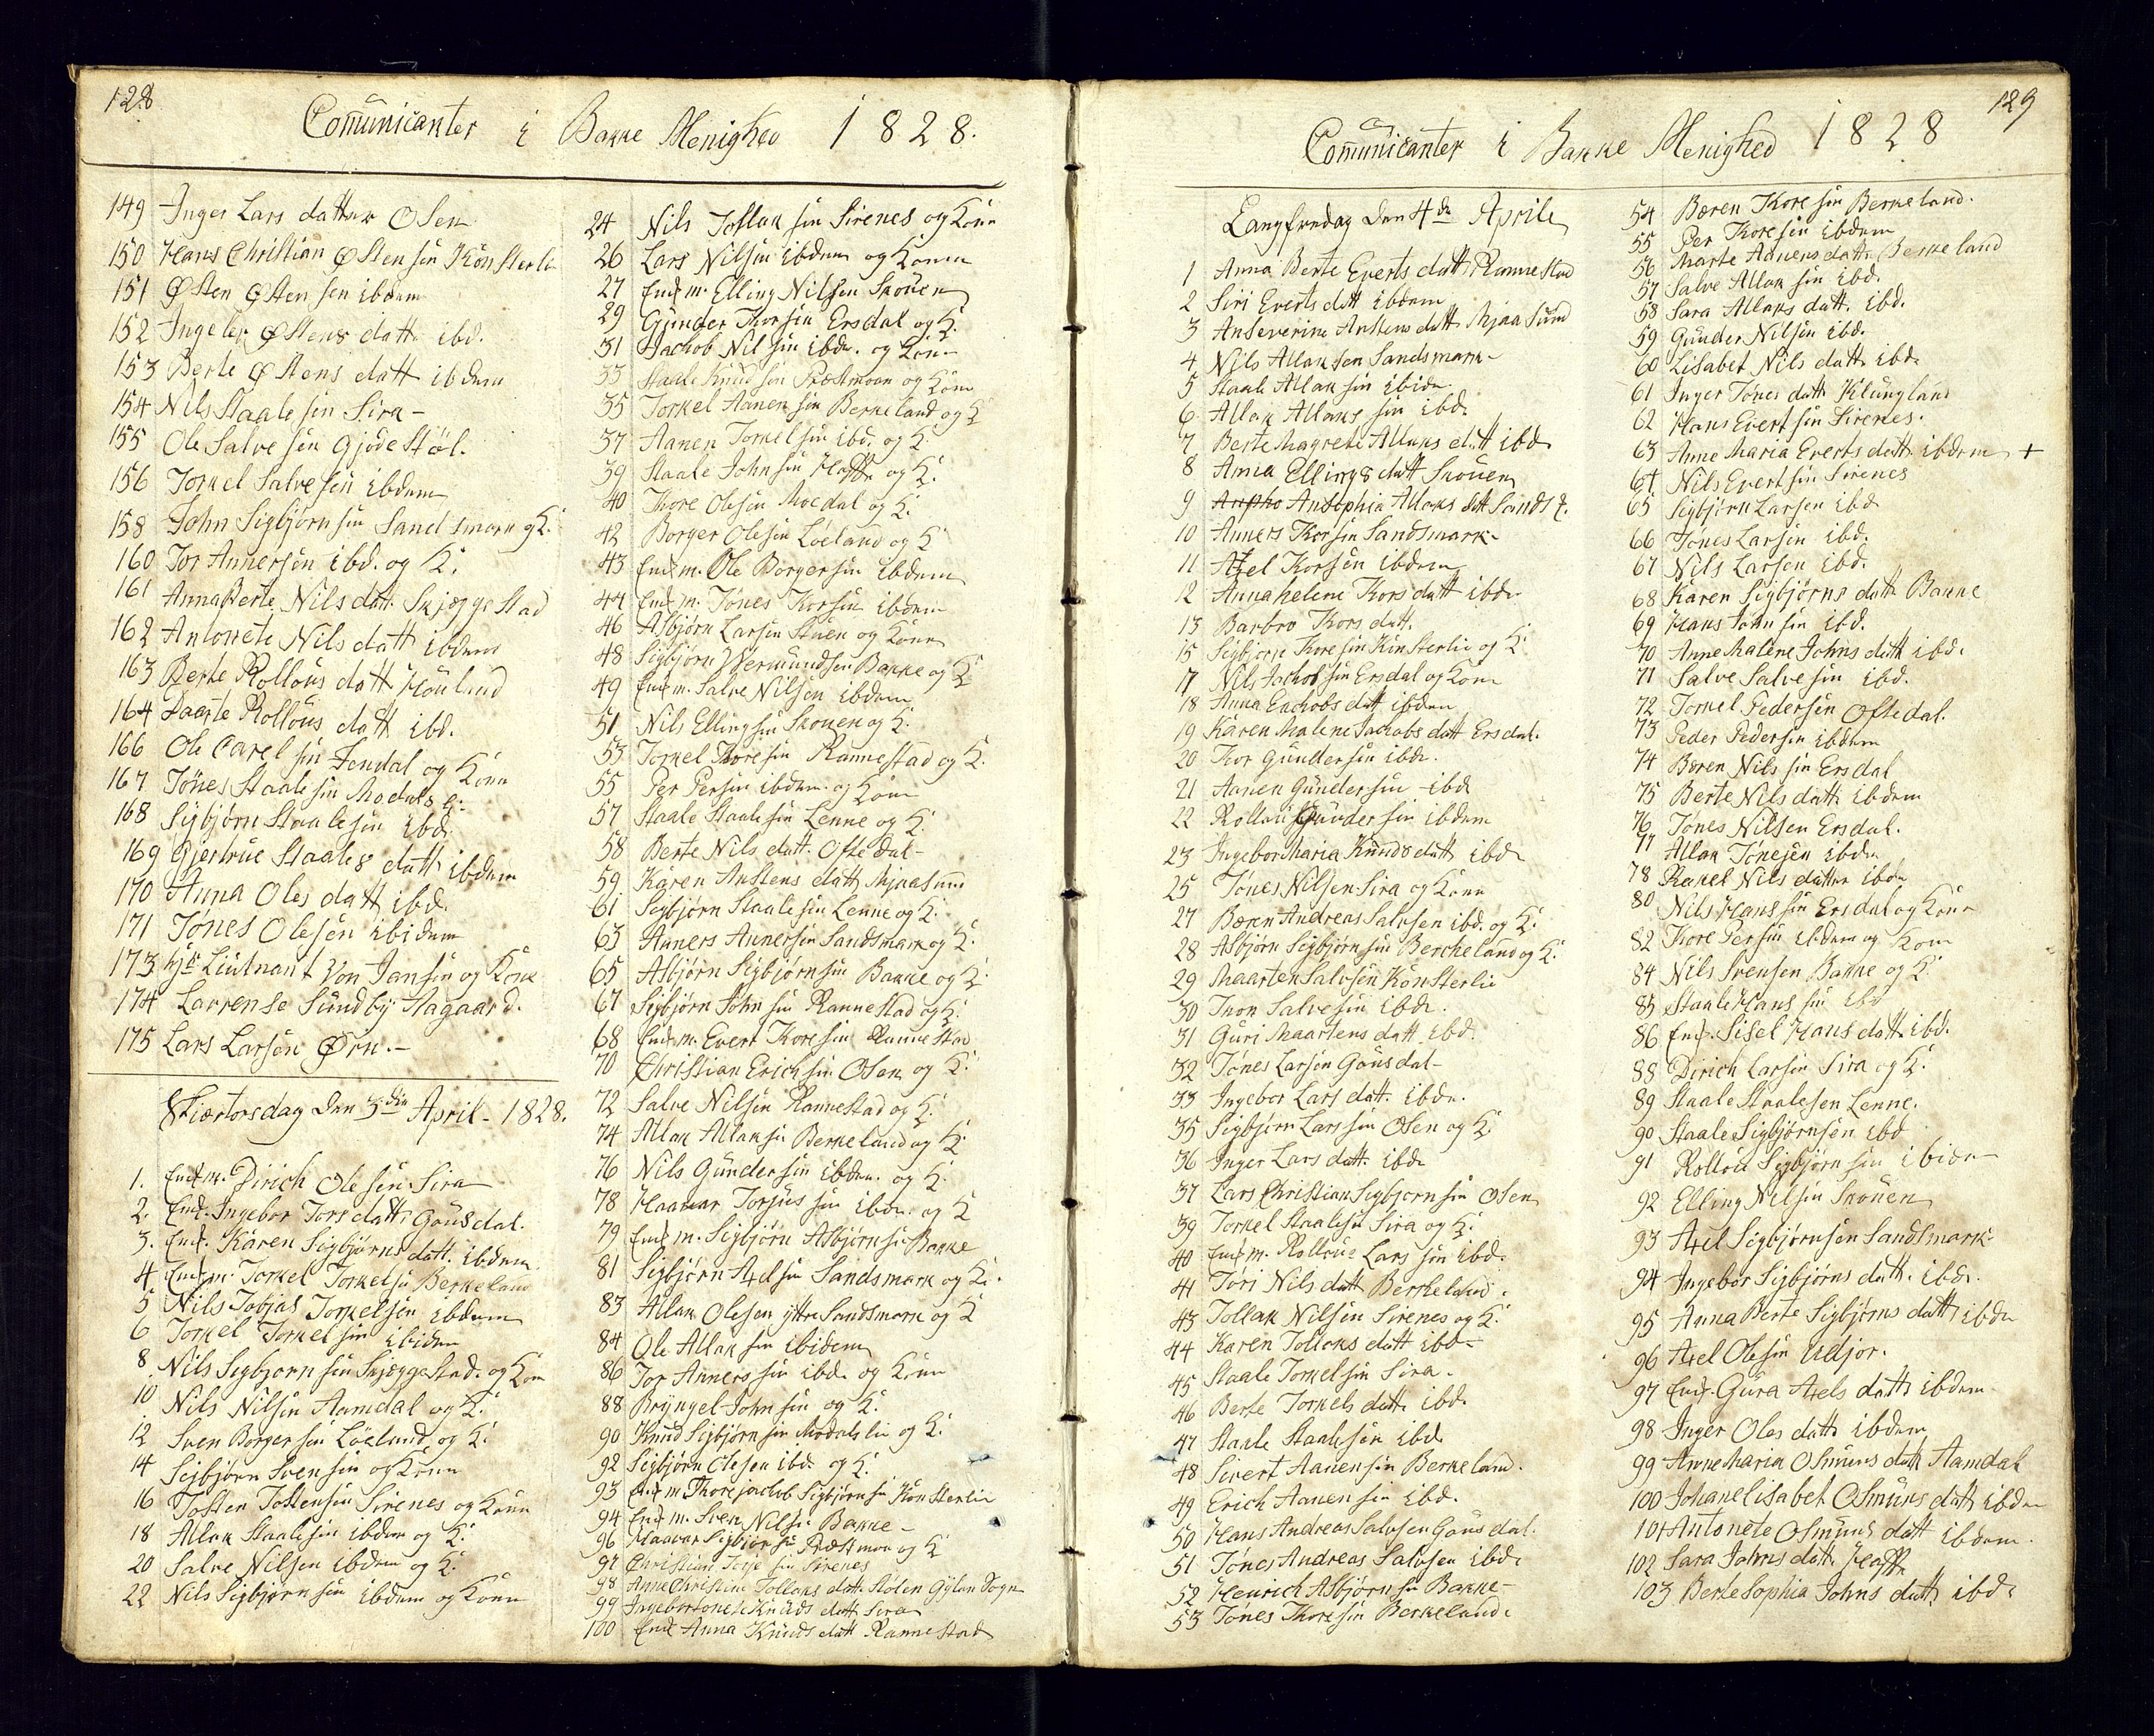 128
Comunicanter i Bakke Menighed 1828.
149 Inger Lars datter Osen
150 Hans Christian Østensen Könsterli
151 Østen Østensen ibdem
152 Ingeler Østens datt. ibd.
153 Berte Østens datt ibdem
154 Nils Staalesen Sira -
155 Ole Salvesen Gjödestöl.
156 Torkel Salvesen ibdem
158 John Sigbjørnsen Sandsmark og K.
160 Tor Annersen ibd. og K.
161 Anna Berte Nilsdatt. Skjeggestad
162 Antonete Nils datt ibdem
163 Berte Rollous datt Houland
164 Rollous datt ibd.
166 Ole Carelsen Fendal og Kone
167 Tönes Staalesen Modals
168 Sigbjørn Staalesen ibd.
169 Gjertrue Staales datt ibdem
170 Anna Oles datt ibd.
171 Tönes Olesen ibidem
173 hr Liutnant Von Jansen og Kone
174 Larrense Sundby Aagaard.
175 Lars Larsen Ørn.-
Skiærtorsdag den 3die April - 1828.
1. Enk m. Dirich Olesen Sira
2. Enk. Ingebor Tors datt. Gousdal.
3. Enk. Karen Sigbjørns datt. ibdem
4 Enk m. Torkel Torkelsen Berkeland
5 Nils Tobias Torkelsen ibdem
6 Torkel Torkelsen ibidem
8 Nils Sigbjørnsen Skjeggestad og Kone
10 Nils Nilsen Aamdal og K.
12 Sven Borgersen Löeland og K.
14 Sigbjørn Svensen og Kone
16 Tosten Tostensen Sirenes og Kone
18 Allak Staalesen ibdem og K.
20 Salve Nilsen ibdem og K.
22 Nils Sigbjørnsen ibdem og Kone
24 Nils Tollaksen Sirenes og Kone
26 Lars Nilsen ibdem og Kone
27 Enk m. Elling Nilsen Skouen
29 Gunder Thorsen Ersdal og K.
31 Jachob Nilsen ibd. og Kone
33 Staale Knudsen Præstmoen og Kone
35 Torkel Aanensen Berkeland og K
37 Aanen Torkelsen ibd. og K.
39 Staale Johnsen og K.
40 Thore Olesen Moedal og K.
42 Borger Olesen Löeland og K
43 Enk m. Ole Borgersen ibdem
44 Enk m. Tönes Korsen ibdem
46 Asbjørn Larsen Stuen og Kone
48 Sigbjørn Wermundsen Bakke og K
49 Enk m. Salve Nilsen ibdem
51 Nils Ellingsen Skouen og K.
53 Torkel Thoresen Rannestad og K.
55 Per Persen ibdem og Kone
57 Staale Staalesen Lenne og K.
58 Berte Nils datt. Oftedal-
59 Karen Anstens datt. Mjaasund
61 Sigbjørn Staalesen Lenne og K.
63 Anners Annersen Sandsmark og K.
65 Asbjørn Sigbjørnsen Bakke og K.
67 Sigbjørn Johnsen Rannestad og K.
68 Enk m. Evert Koresen Rannestad
70 Christian Erichsen Osen og K.
72 Salve Nilsen Rannestad og K.
74 Allak Allaksen Berkeland og K.
76 Nils Gundersen ibdem og K.
78 Haavar Torjussen ibdem og K
79 Enk m. Sigbjørn Asbjørnsen Bakke
81 Sigbjørn Axelsen Sandsmark og K.
83 Allak Olesen yttre Sandsmark og K
84 Ole Allaksen ibidem
86 Tor Annerssen ibd. og Kone
88 Bryngel Johnsen og K.
90 Knud Sigbjørnsen Modalslie og K.
92 Sigbjørn Olesen ibd. og K.
93 Enk m Thore Jachob Sigbjørnsen Könsterlie
94 Enk m. Sven Nilsen Bakke -
96 Haavar Sigbjørnsen Præstmoe og K
97 Christian Sirenes
98 Anne Christine Tollaks datt. Stölen Gyland Sogn
99 Ingebortonete Knuds datt Sira
100 Enk Anna Knuds datt Rannestad
129
Comunicanter i Bakke Menighed 1828
Langfredag den 4de Aprile
1 Anna Berte Everts datt Rannestad
2 Siri Everts datt ibdem
3 Anseverine Anstens datt Mjaasund
4 Nils Allaksen Sandsmark -
5 Staale Allaksen ibide
6 Allak Allakssen ibd.
7 Berte Magrete Allaks datt ibd
8 Anna Ellings datt Skouen
9 Ansophia Allaks datt Sands
10 Anners Korsen Sandsmark-
11 Axel Korsen ibdem
12 Anna helene Kors datt ibd.
13 Barbro Kors datt.
15 Sigbjørn Koresen Könsterlie og K.
17 Nils Jachobsen Ersdal og Kone
18 Anna Jachobs datt ibdem
19 Karen Malene Jachobs datt Ersdal.
20 Kor Gundersen ibd.
21 Aanen Gundersen - ibd
22 Rollou Gundersen ibdem
23 Ingebor Maria Knuds datt ibd
25 Tönes Nilsen Sira og Kone
27 Bæren Andreas Salvsen ibd. og K.
28 Asbjørn Sigbjørnsen Bercheland og K.
29 Maarten Salvsen Könsterlie
30 Tron Salvesen ibd.
31 Guri Maartens datt ibd.
32 Tönes Larsen Gousdal-
33 Ingebor Lars datt. ibd.
35 Sigbjørn Larssen Osen og K.
36 Inger Lars datt. ibd.
37 Lars Christian Sigbjørnsen Osen
39 Torkel Staalesen Sira og K.
40 Enk m. Rollou Larssen ibd.
41 Tori Nils datt Berkeland.
43 Tollak Nilsen Sirenes og K.
44 Karen Tollaks datt ibd-
45 Staale Torkelsen Sira -
46 Berte Torkels datt. ibd.
47 Staale Staalesen ibd.
48 Sivert Aanensen Berkeland.
49 Erich Aanensen ibd.
50 Hans Andreas Salvsen Gousdal.
51 Tönes Andreas Salvsen ibd.
52 Henrich Asbjørnsen Bakke-
53 Tönes Thoresen Berkeland.
54 Bæren Koresen Berkeland.
55 Per Koresen ibdem
56 Marte Aanens datt. Berkeland
57 Salve Allaksen ibd.
58 Sara Allaks datt. ibd.
59 Gunder Nilsen ibd.
60 Lisabet Nils datt ibd.
61 Inger Tönes datt Klungland
62 Hans Evertsen Sirenes.
63 Anne Maria Everts datt ibdem +
64 Nils Evertsen Sirenes
65 Sigbjørn Larsen ibd
66 Tönes Larsen ibd.
67 Nils Larsen ibd.
68 Karen Sigbjørns datt Bakke
69 Hans Johnsen ibd.
70 Anne Malene Johns datt ibd.
71 Salve Salvesen ibd.
72 Torkel Pedersen Oftedal.
73 Peder Pedersen ibdem
74 Bæren Nilssen Ersdal
75 Berte Nils datt ibdem
76 Tönes Nilsen Ersdal.
77 Allak Tönesen ibd.
78 Rakel Nils datter ibd.
80 Nils Hanssen Ersdal og Kone
82 Kore Persen ibdem og Kone
84 Nils Svensen Bakke og K.
85 Staale Hanssen ibd
86 Enk. Sisel Hans datt. ibd.
88 Dirich Larsen Sira og K.
89 Staale Staalesen Lenne.
90 Staale Sigbjørnsen ibd
91 Rollou Sigbjørnsen ibide
92 Elling Nilsen Skouen
93 Axel Sigbjørnsen Sandsmark-
94 Ingebor Sigbjørns datt. ibd.
95 Anna Berte Sigbjørns datt ibd
96 Axel Olesen Udjor.
97 Enk. Gura Axels datt ibdem.
98 Inger Oles datt ibdem
99 Anne Maria Osmuns datt Aamdal
100 Johanelisabet Osmuns datt ibdem
101 Antonete Osmuns datt ibdem.
102 Sara Johns datt.
103 Berte Sophia Johns datt. ibd.